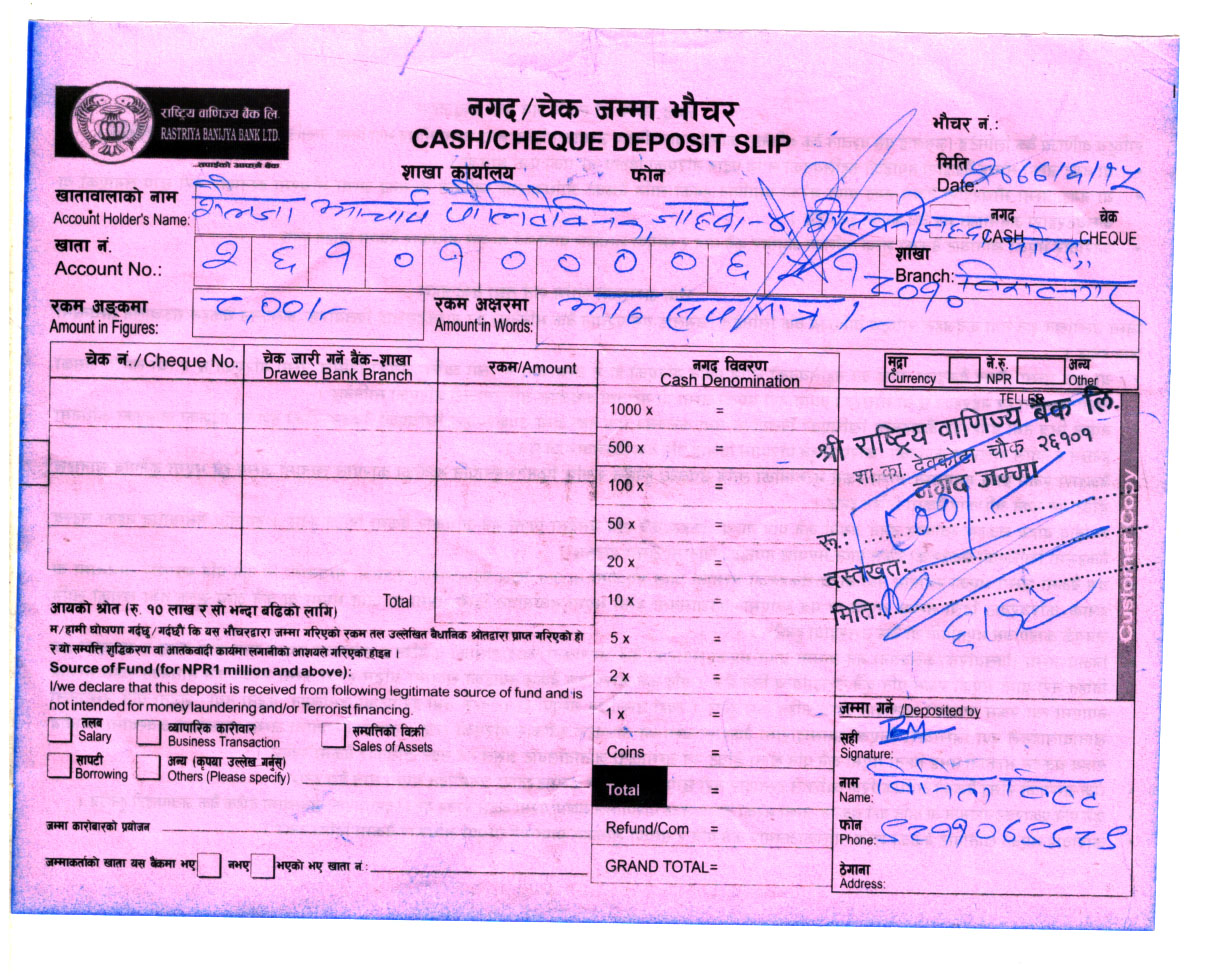 राष्ट्रिय वाणिज्य बैंक लि.
RASTRIYA BANIJYA BANK LTD.
...तपाईंको आफ्नै बैंक
नगद/चेक जम्मा भौचर
CASH/CHEQUE DEPOSIT SLIP
भौचर नं.:
शाखा कार्यालय फोन
मिति
Date:
खातावालाको नाम
Account Holder's Name: आचार्य
नगद चेक
CASH CHEQUE
खाता नं.
Account No.: २ ६ १ ० १ ० ० ० ० ६
शाखा
Branch: विराटनगर
रकम अङ्कमा
Amount in Figures: ८,००।-
रकम अक्षरमा
Amount in Words: आठ सय मात्र।-
चेक नं./Cheque No. चेक जारी गर्ने बैंक-शाखा रकम/Amount
Drawee Bank Branch
नगद विवरण
Cash Denomination
मुद्रा ने.रु. अन्य
Currency NPR Other
TELLER
1000 x =
500 x =
100 x =
50 x =
20 x =
10 x =
5 x =
2 x =
1 x =
Coins =
Total =
Refund/Com =
GRAND TOTAL=
श्री राष्ट्रिय वाणिज्य बैंक लि.
शा.का. देवकोटा चौक २६१०१
नगद जम्मा
रू.:
दस्तखत:
मिति:
Customer Copy
Total
आयको श्रोत (रु. १० लाख र सो भन्दा बढिको लागि)
म/हामी घोषणा गर्दछु/गर्दछौं कि यस भौचरद्वारा जम्मा गरिएको रकम तल उल्लेखित बैधानिक श्रोतद्वारा प्राप्त गरिएको हो
र यो सम्पत्ति शुद्धिकरण वा आतंकवादी कार्यमा लगानीको आशयले गरिएको होइन ।
Source of Fund (for NPR1 million and above):
I/we declare that this deposit is received from following legitimate source of fund and is
not intended for money laundering and/or Terrorist financing.
तलब व्यापारिक कारोवार सम्पत्तिको विक्री
Salary Business Transaction Sales of Assets
सापटी अन्य (कृपया उल्लेख गर्नुस्)
Borrowing Others (Please specify)
जम्मा कारोबारको प्रयोजन
जम्माकर्ताको खाता यस बैंकमा भए नभए भएको भए खाता नं.:
जम्मा गर्ने /Deposited by
सही
Signature:
नाम
Name:
फोन
Phone:
ठेगाना
Address: